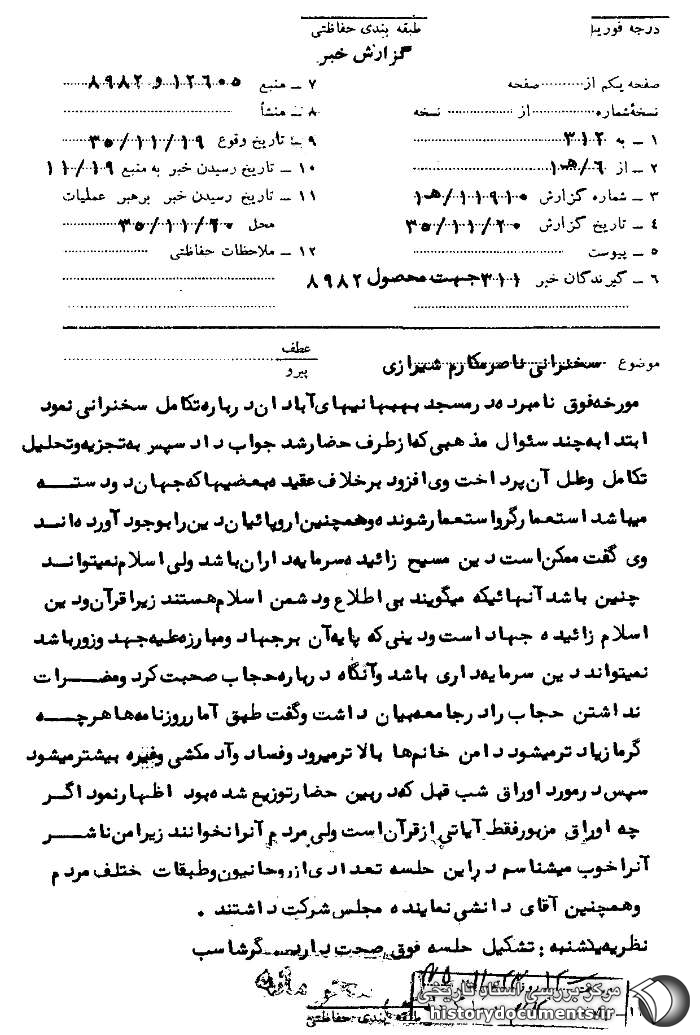 درجه فوریت
طبقه بندی حفاظتی
گزارش خبر
صفحه یکم از ........ صفحه
نسخهٔ شماره ........ از ........ نسخه
۱ – به ۳۱۲
۲ – از ۶/هـ۱
۳ – شماره گزارش ۱۱۹۱۰/هـ۱
۴ – تاریخ گزارش ۳۵/۱۱/۲۰
۵ – پیوست
۶ – گیرندگان خبر ۳۱۱ جهت محصول ۸۹۸۲
۷ – منبع ۱۲۶۰۵ و ۸۹۸۲
۸ – منشأ
۹ – تاریخ وقوع ۳۵/۱۱/۱۹
۱۰ – تاریخ رسیدن خبر به منبع ۱۱/۱۹
۱۱ – تاریخ رسیدن خبر برهبر عملیات
محل ۳۵/۱۱/۲۰
۱۲ – ملاحظات حفاظتی
موضوع سخنرانی ناصر مکارم شیرازی
عطف
پیرو
مورخه فوق نامبرده در مسجد بهبهانیهای آبادان درباره تکامل سخنرانی نمود
ابتدا به چند سئوال مذهبی که از طرف حضار شد جواب داد سپس به تجزیه و تحلیل
تکامل و علل آن پرداخت وی افزود برخلاف عقیده بعضیها که جهان دو دسته
میباشد استعمارگر و استعمار شونده و همچنین اروپائیان دین را بوجود آورده اند
وی گفت ممکن است دین مسیح زائیده سرمایه داران باشد ولی اسلام نمیتواند
چنین باشد آنهائیکه میگویند بی اطلاع و دشمن اسلام هستند زیرا قرآن و دین
اسلام زائیده جهاد است و دینی که پایه آن بر جهاد و مبارزه علیه جهد و زور باشد
نمیتواند دین سرمایه داری باشد و آنگاه درباره حجاب صحبت کرد و مضرات
نداشتن حجاب را در جامعه بیان داشت و گفت طبق آمار روزنامه ها هر چه
گرما زیادتر میشود دامن خانم ها بالاتر میرود و فساد و آدمکشی و غیره بیشتر میشود
سپس در مورد اوراقی شب قبل که در بین حضار توزیع شده بود اظهار نمود اگر
چه اوراق مزبور فقط آیاتی از قرآن است ولی مردم آنرا نخوانند زیرا من ناشر
آنرا خوب میشناسم در این جلسه تعدادی از روحانیون و طبقات ختلف مردم
و همچنین آقای دانشی نماینده مجلس شرکت داشتند .
نظریه یکشنبه : تشکیل جلسه فوق صحت دارد . گرشاسب
طبقه بندی حفاظتی
مرکز بررسی اسناد تاریخی
historydocuments.ir